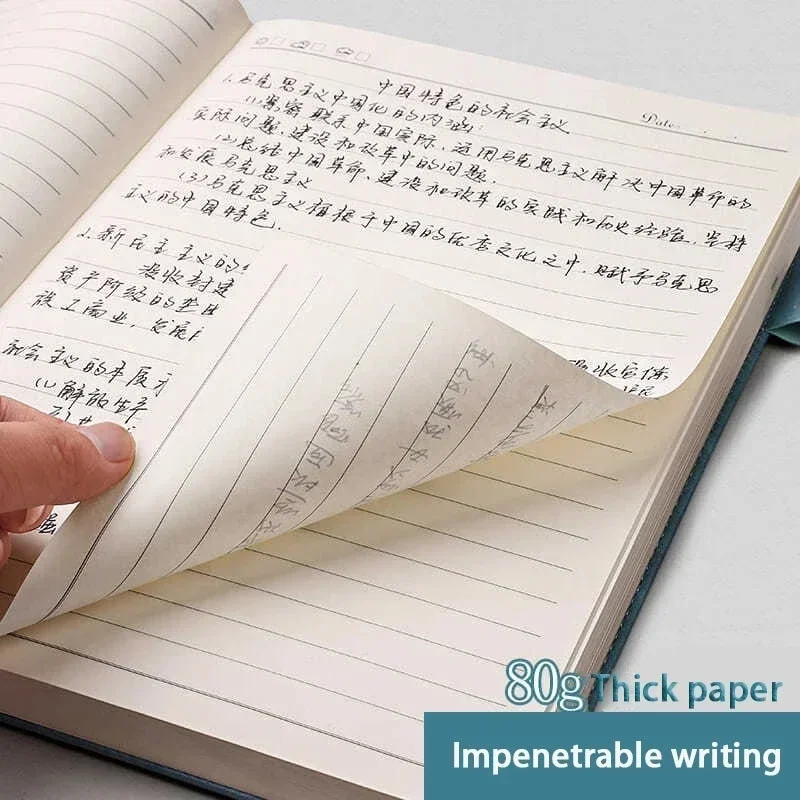 Date:
中国特色的社会主义
1.马克思主义中国化的内涵:
(1)紧密联系中国实际,运用马克思主义解决中国革命的
实际问题,建设和改革中的问题.
(2)总结中国革命、建设和改革的实践和历史经验,坚持
和发展马克思主义
(3)马克思主义植根于中国的优秀文化之中,赋予马克思
主义的中国特色.
2.新民主主义的
资产阶级的
族工商业,发展
社会主义的本
(1)解放生产
80g Thick paper
Impenetrable writing